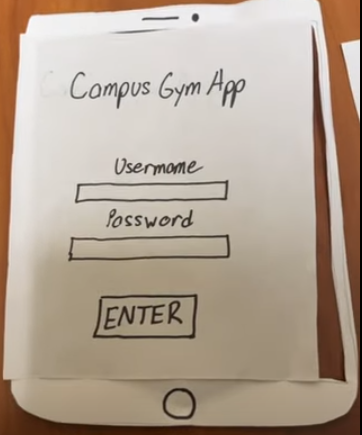 Campus Gym App
Username
Password
ENTER